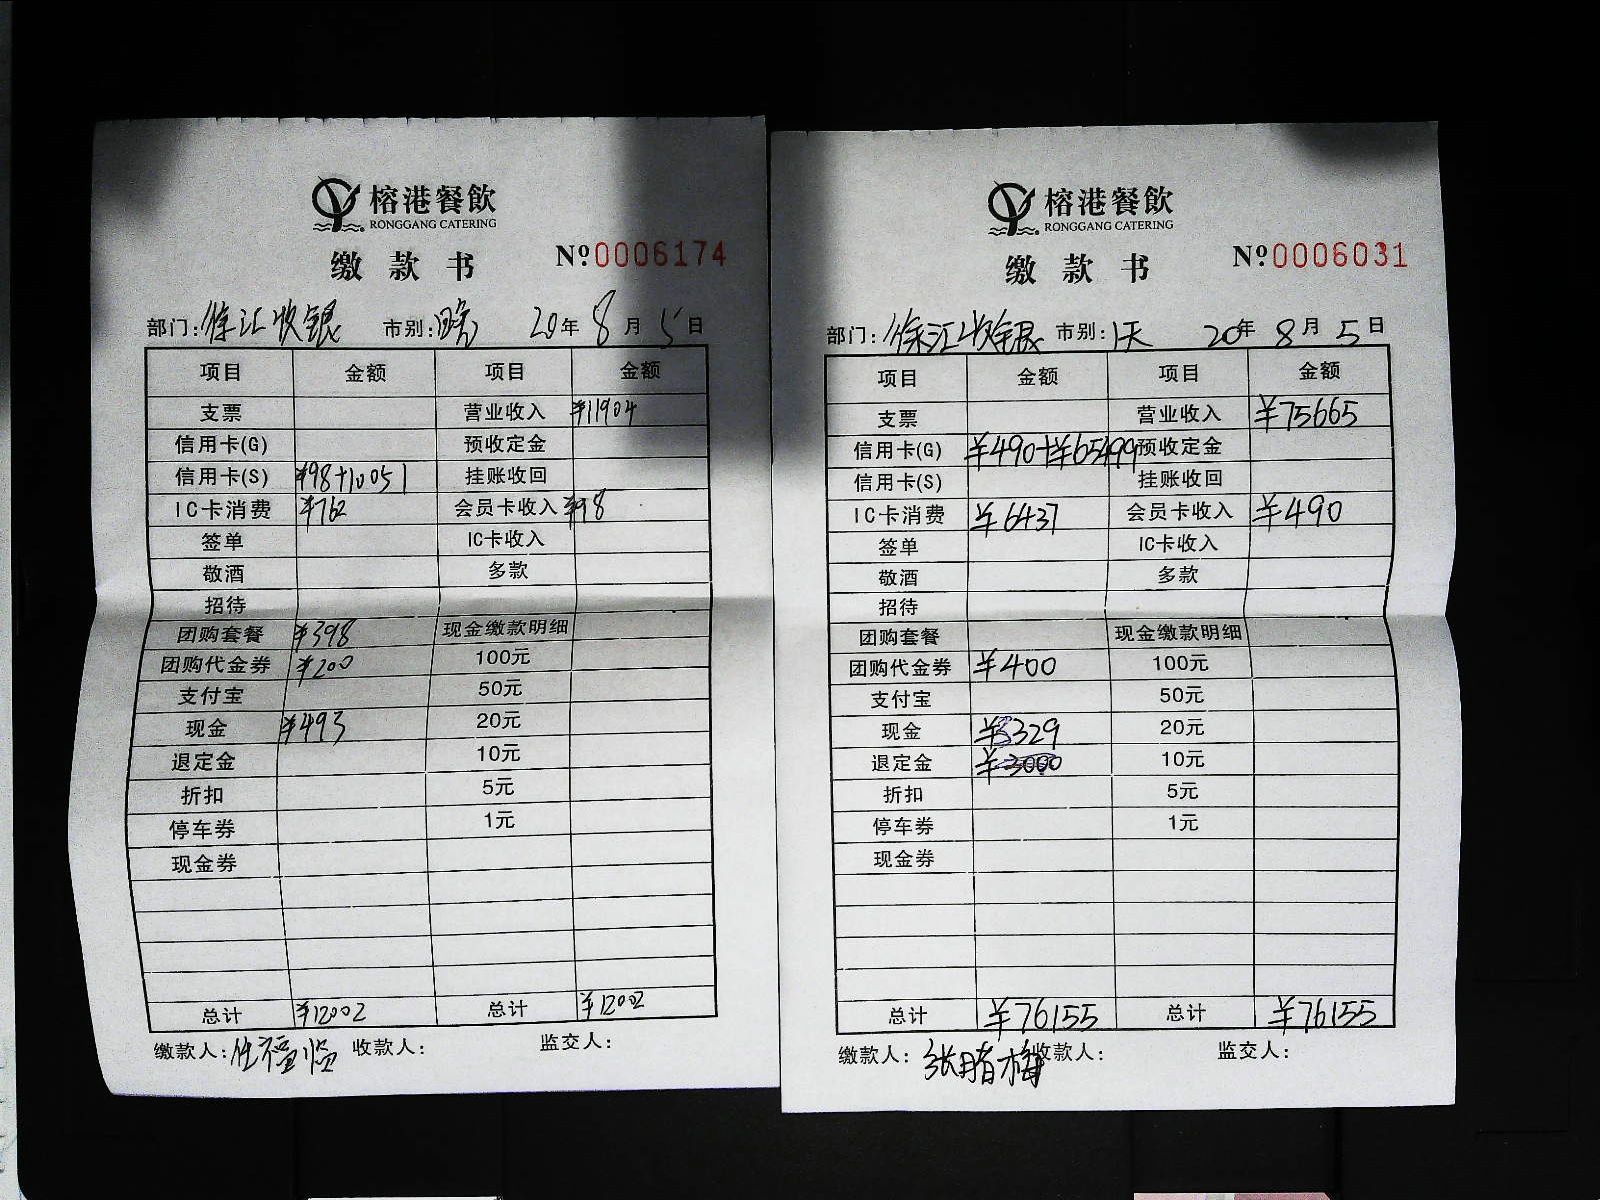 榕港餐飲
RONGGANG CATERING
缴款书 №0006174
部门:徐汇收银 市别: 20年8月5日
项目 金额 项目 金额
支票 营业收入 ¥11904
信用卡(G) 预收定金
信用卡(S) ¥98+10051 挂账收回
IC卡消费 ¥762 会员卡收入 ¥98
签单 IC卡收入
敬酒 多款
招待
团购套餐 ¥398 现金缴款明细
团购代金券 ¥200 100元
支付宝 50元
现金 ¥493 20元
退定金 10元
折扣 5元
停车券 1元
现金券
总计 ¥12002 总计 ¥12002
缴款人: 收款人: 监交人:
榕港餐飲
RONGGANG CATERING
缴款书 №0006031
部门:徐汇收银 市别: 20年8月5日
项目 金额 项目 金额
支票 营业收入 ¥75665
信用卡(G) ¥490+¥65499 预收定金
信用卡(S) 挂账收回
IC卡消费 ¥6437 会员卡收入 ¥490
签单 IC卡收入
敬酒 多款
招待
团购套餐 现金缴款明细
团购代金券 ¥400 100元
支付宝 50元
现金 ¥3329 20元
退定金 ¥3000 10元
折扣 5元
停车券 1元
现金券
总计 ¥76155 总计 ¥76155
缴款人: 收款人: 监交人: